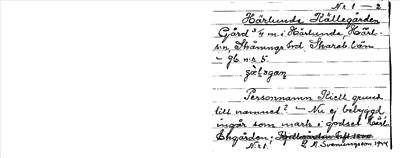 Nr 1 — 2
Härlunda Källegården
Gård 3/4 m. i Härlunda, Härl-
sn, Skånings hd. Skarab. län
— 96 nr 5.
Personnamn Kjell grund
till namnet? — Nu ej bebyggd
ingår som mark i godset Härl.
Ehgården.
Nr 1. L. M. Svenungsson 1944